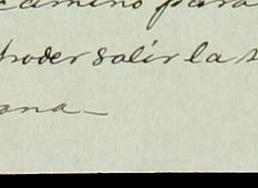 camino para
poder salir la s
ana_